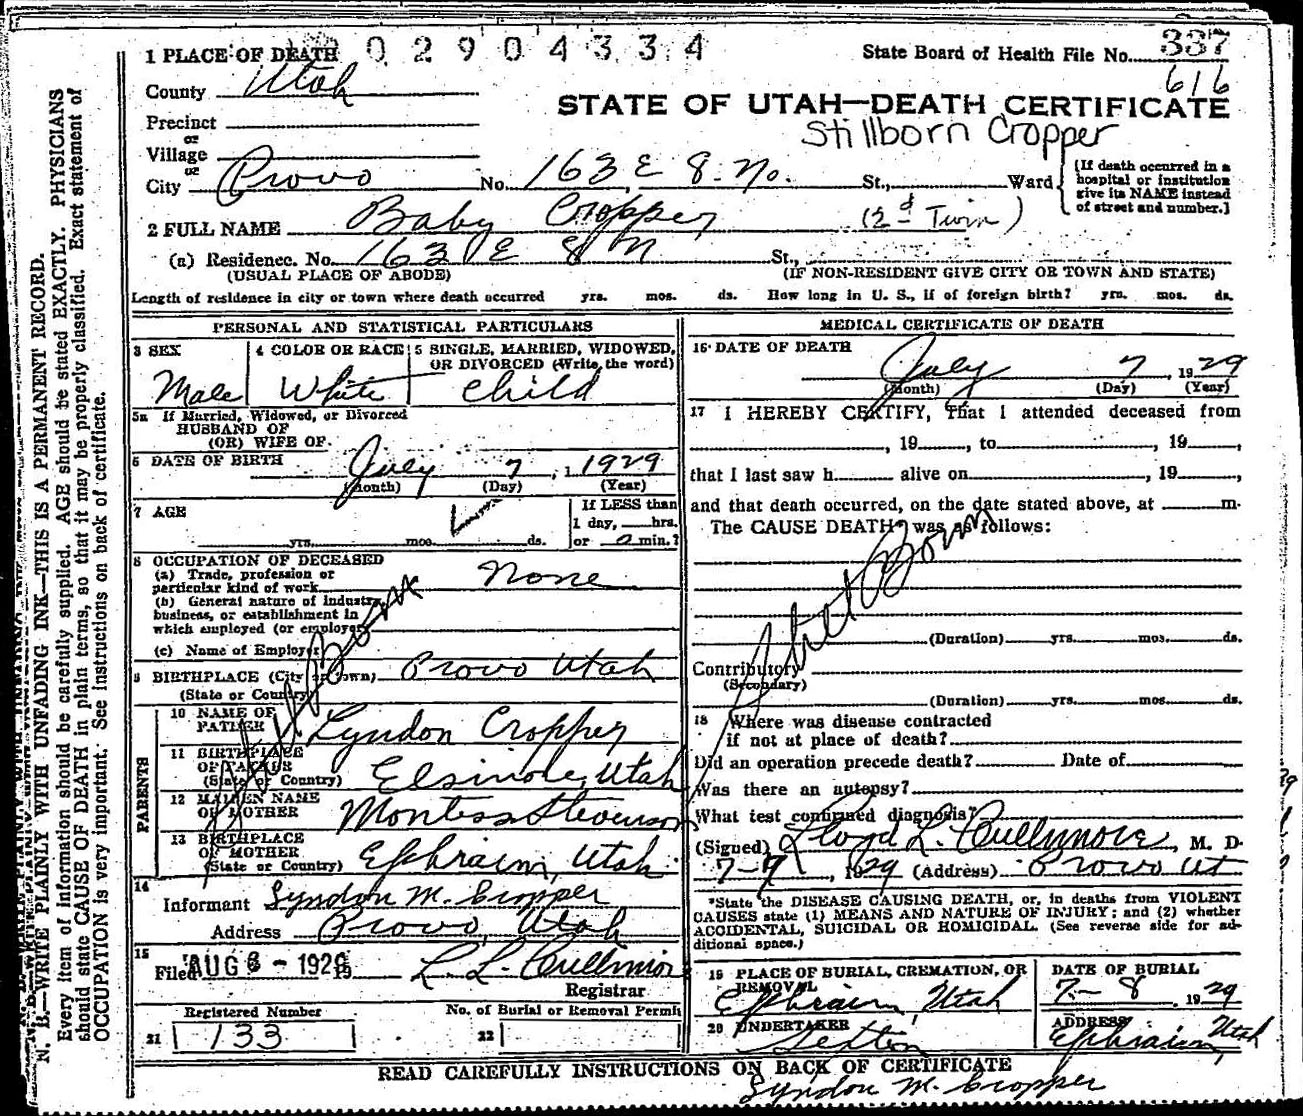 1 PLACE OF DEATH 0 2 9 0 4 3 3 4
State Board of Health File No. 337
616
County Utah
STATE OF UTAH—DEATH CERTIFICATE
Stillborn Cropper
Precinct
or
Village
or
City Provo No. 163 E 8. No. St., Ward
[If death occurred in a hospital or institution give its NAME instead of street and number.]
2 FULL NAME Baby Cropper (2d Twin)
(a) Residence. No. 163 E 8 N St.,
(USUAL PLACE OF ABODE) (IF NON-RESIDENT GIVE CITY OR TOWN AND STATE)
Length of residence in city or town where death occurred yrs. mos. ds. How long in U. S., if of foreign birth? yrs. mos. ds.
PERSONAL AND STATISTICAL PARTICULARS
3 SEX
Male
4 COLOR OR RACE
White
5 SINGLE, MARRIED, WIDOWED,
OR DIVORCED (Write the word)
Child
5a If Married, Widowed, or Divorced
HUSBAND OF
(OR) WIFE OF
6 DATE OF BIRTH July 7, 1929
(Month) (Day) (Year)
7 AGE
yrs. mos. ds.
If LESS than
1 day, hrs.
or 0 min.?
8 OCCUPATION OF DECEASED
(a) Trade, profession or
particular kind of work None
(b) General nature of industry,
business, or establishment in
which employed (or employer)
(c) Name of Employer
Still Born
9 BIRTHPLACE (City or Town) Provo Utah
(State or Country)
PARENTS
10 NAME OF
FATHER Lyndon Cropper
11 BIRTHPLACE
OF FATHER
(State or Country) Elsinore, Utah
12 MAIDEN NAME
OF MOTHER Montess Stevenson
13 BIRTHPLACE
OF MOTHER
(State or Country) Ephraim, Utah
14
Informant Lyndon M. Cropper
Address Provo, Utah
15
Filed AUG 6 - 1929 L. L. Cullimore
Registrar
Registered Number
21 133
No. of Burial or Removal Permit
22
MEDICAL CERTIFICATE OF DEATH
16 DATE OF DEATH
July 7, 1929
(Month) (Day) (Year)
17 I HEREBY CERTIFY, That I attended deceased from
, 19 , to , 19 ,
that I last saw h alive on , 19 ,
and that death occurred, on the date stated above, at m.
The CAUSE DEATH? was as follows:
Still Born
(Duration) yrs. mos. ds.
Contributory
(Secondary)
(Duration) yrs. mos. ds.
18 Where was disease contracted
if not at place of death?
Did an operation precede death? Date of
Was there an autopsy?
What test confirmed diagnosis?
(Signed) Lloyd L. Cullimore, M. D.
7-7, 1929 (Address) Provo Ut
*State the DISEASE CAUSING DEATH, or, in deaths from VIOLENT
CAUSES state (1) MEANS AND NATURE OF INJURY; and (2) whether
ACCIDENTAL, SUICIDAL OR HOMICIDAL. (See reverse side for ad-
ditional space.)
19 PLACE OF BURIAL, CREMATION, OR
REMOVAL
Ephraim, Utah
DATE OF BURIAL
7-8, 1929
20 UNDERTAKER
Sexton
ADDRESS
Ephraim, Utah
READ CAREFULLY INSTRUCTIONS ON BACK OF CERTIFICATE
Lyndon M. Cropper
N. B.—WRITE PLAINLY WITH UNFADING INK—THIS IS A PERMANENT RECORD.
Every item of information should be carefully supplied. AGE should be stated EXACTLY. PHYSICIANS
should state CAUSE OF DEATH in plain terms, so that it may be properly classified. Exact statement of
OCCUPATION is very important. See instructions on back of certificate.